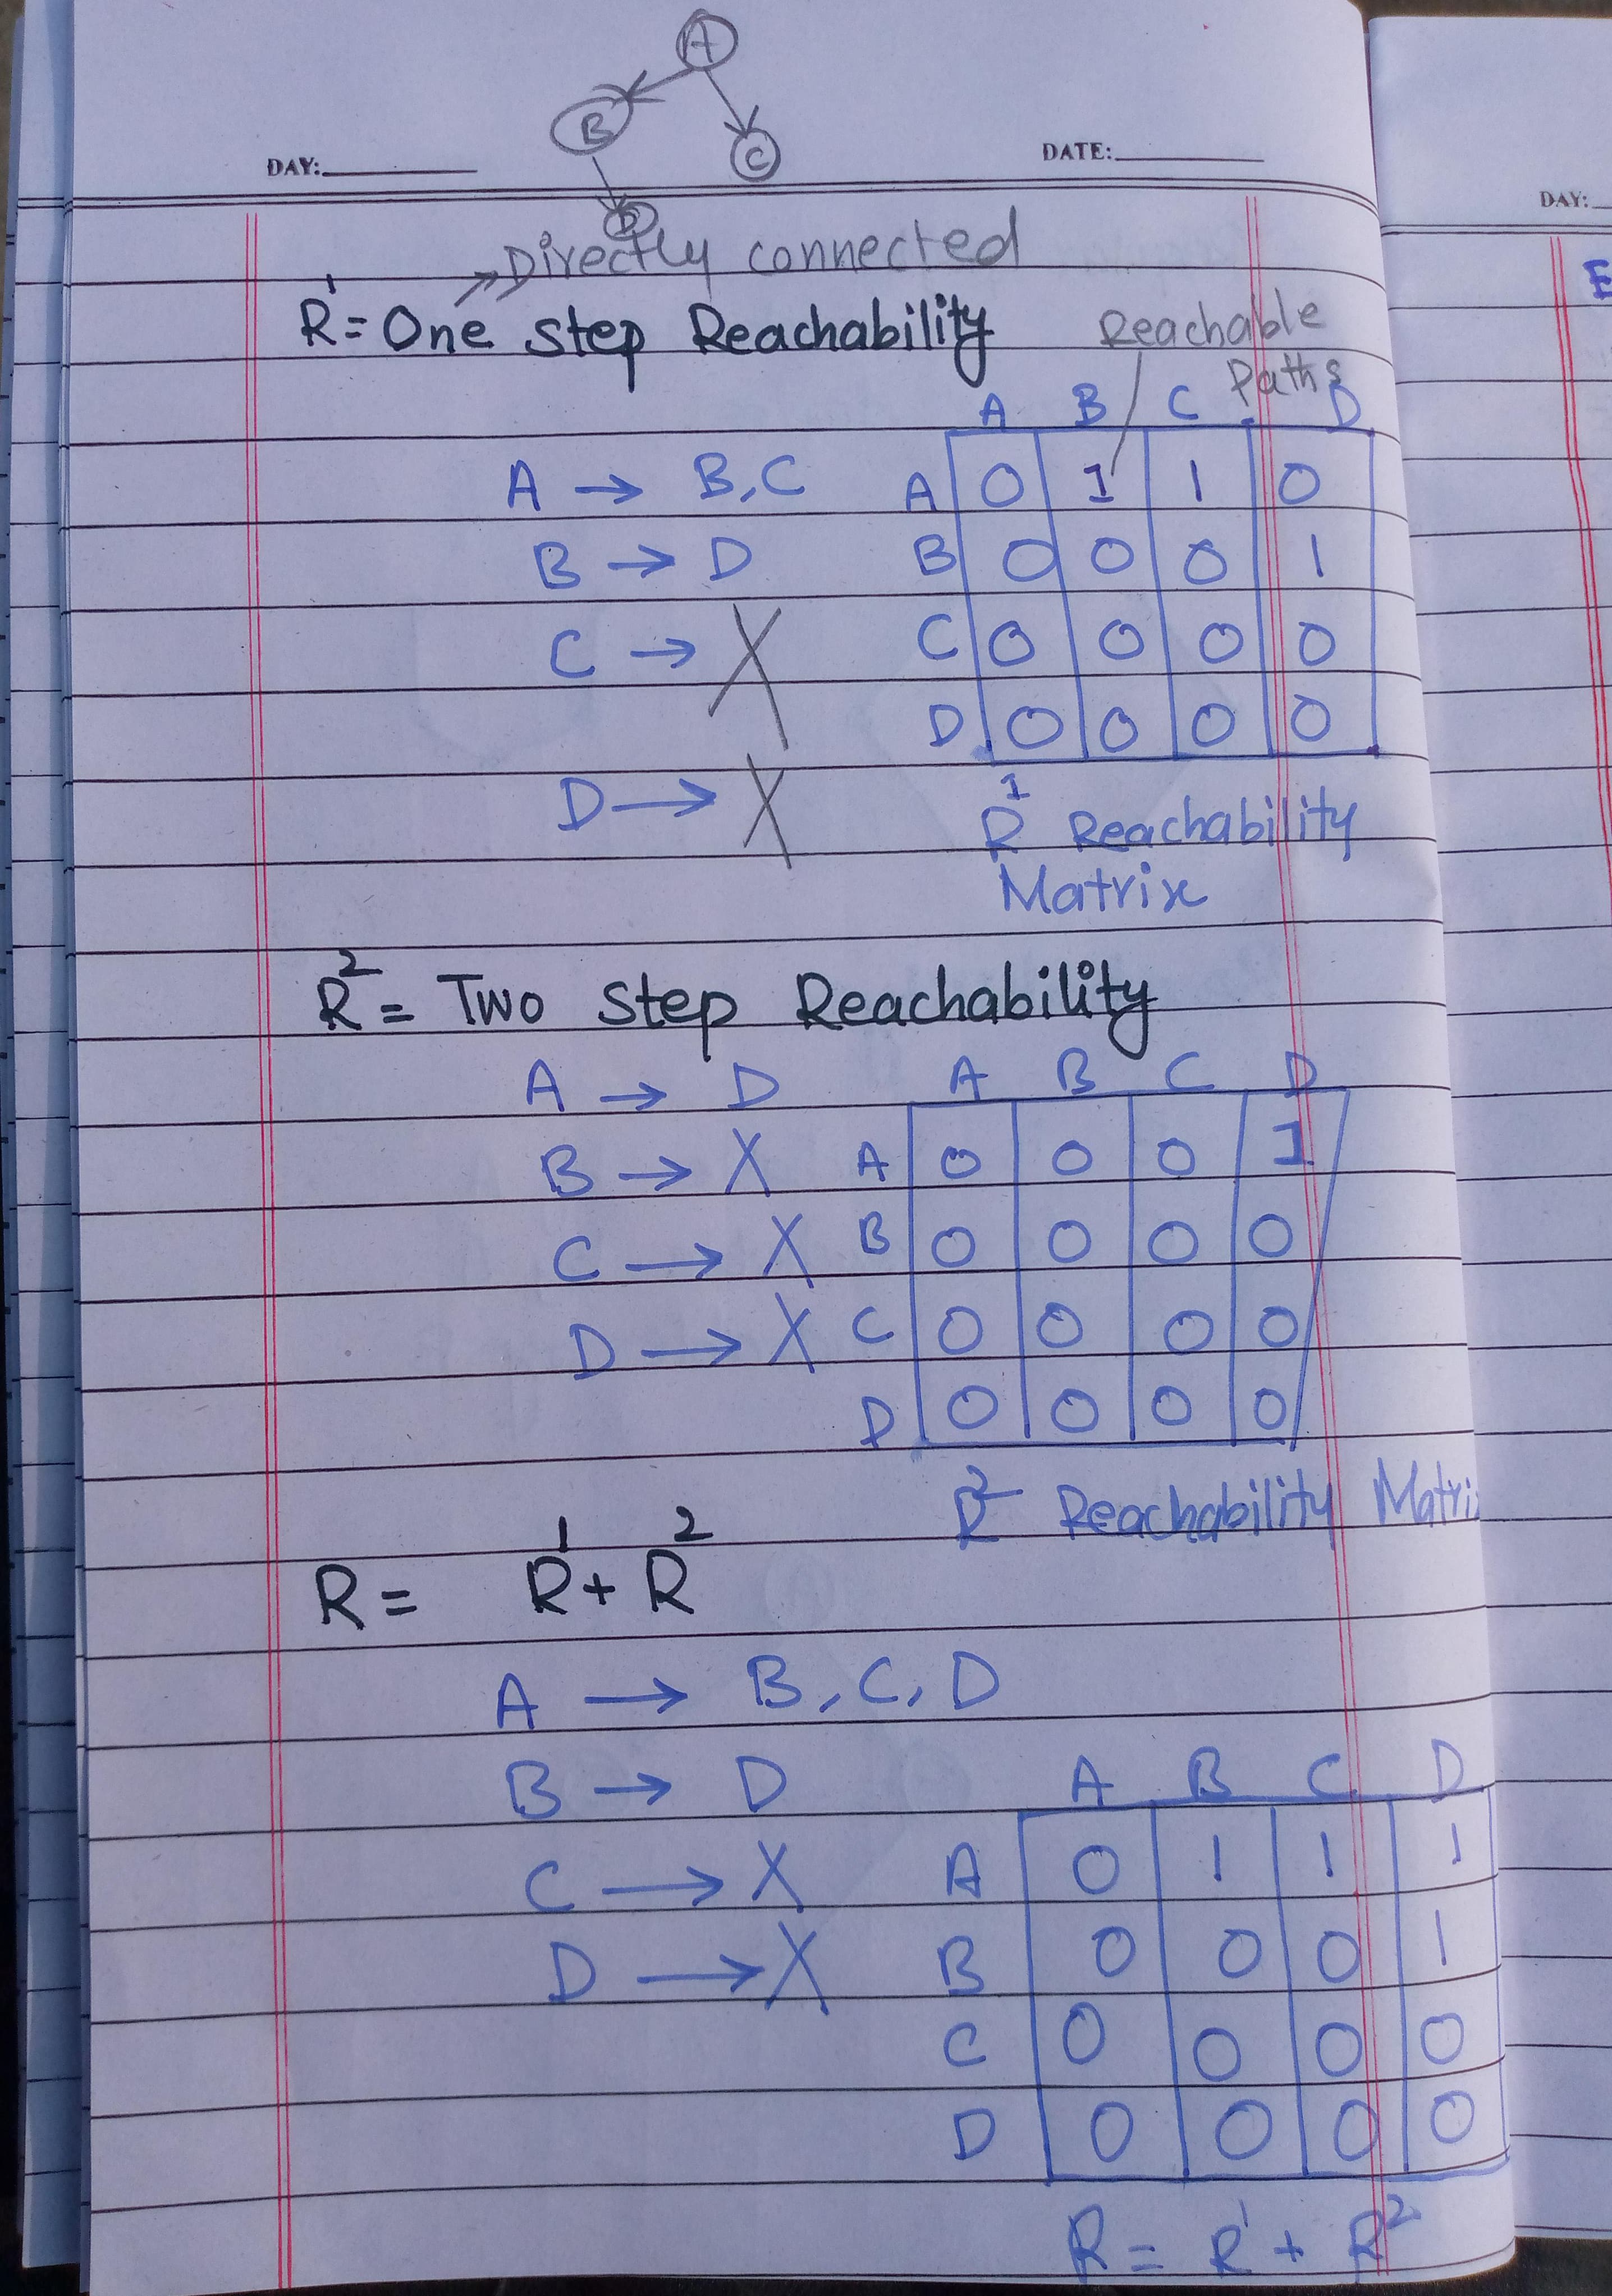 A
B
C
DAY:
DATE:
DAY:
D
Directly connected
R¹= One step Reachability
Reachable
Paths
A B C D
A → B, C A 0 1 1 0
B → D B 0 0 0 1
C → X C 0 0 0 0
D 0 0 0 0
D → X
R¹ Reachability
Matrix
R² = Two step Reachability
A → D A B C D
B → X A 0 0 0 1
C → X B 0 0 0 0
D → X C 0 0 0 0
D 0 0 0 0
R² Reachability Matri
R = R¹ + R²
A → B, C, D
B → D A B C D
C → X A 0 1 1 1
D → X B 0 0 0 1
C 0 0 0 0
D 0 0 0 0
R = R¹ + R²
E